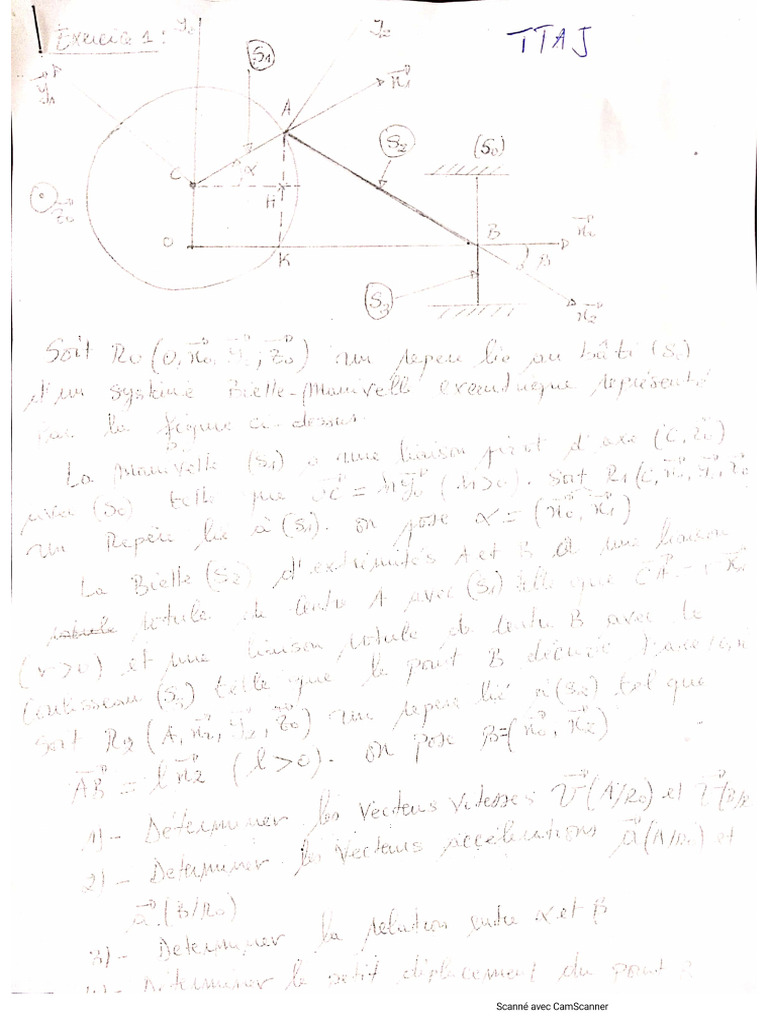 Exercice 1 :
TTAJ
y0
y2
S1
x1
y1
A
S2
(S0)
C
α
H
z0
O
K
B
x0
β
S3
x2
Soit R0 (O, x0, y0, z0) un repère lié au bâti (S0)
d'un système Bielle-Manivelle excentrique représenté
sur la figure ci-dessus.
La Manivelle (S1) a une liaison pivot d'axe (C, z0)
avec (S0) telle que OC = h y0 (h>0). Soit R1(C, x1, y1, z0
un Repère lié à (S1). on pose α = (x0, x1)
La Bielle (S2) d'extrémités A et B a une liaison
rotule de centre A avec (S1) telle que CA = r x1
(r>0) et une liaison rotule de centre B avec le
coulisseau (S3) telle que le point B décrive l'axe
Soit R2 (A, x2, y2, z0) un repère lié à (S2) tel que
AB = l x2 (l>0). on pose β=(x0, x2)
1)- Déterminer les vecteurs vitesses V(A/R0) et V(B/R
2)- Déterminer les vecteurs accélérations a(A/R0) et
a(B/R0)
3)- Déterminer la relation entre α et β
Déterminer le petit déplacement du point B
Scanné avec CamScanner